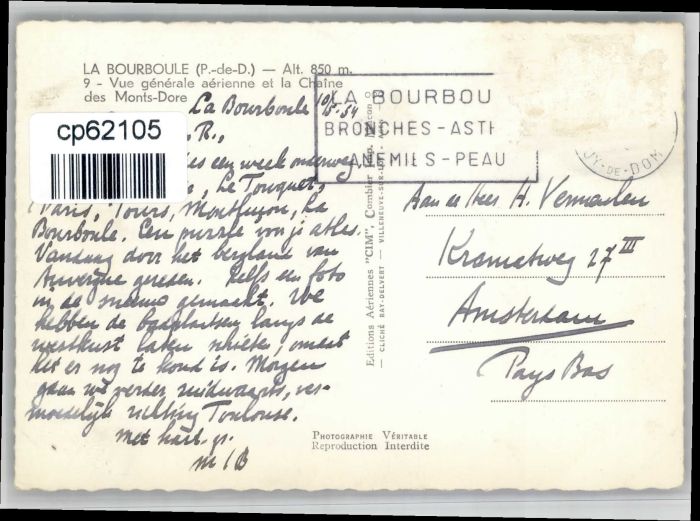 LA BOURBOULE (P.-de-D.) — Alt. 850 m.
9 - Vue générale aérienne et la Chaîne
des Monts-Dore
cp62105
La Bourboule
R.,
een week onderweg,
Le Touquet,
Paris, Tours, Montluçon, La
Bourboule. Een puzzle voor je atlas.
Vandaag door het bergland van
Auvergne gereden. Zelfs een foto
in de sneeuw gemaakt. We
hebben de badplaatsen langs de
westkust laten schieten, omdat
het er nog te koud is. Morgen
gaan we verder zuidwaarts, ver-
moedelijk richting Toulouse.
Met hart. gr.
LA BOURBOU
BRONCHES-ASTH
ANEMIES-PEAU
UY-DE-DOM
Editions Aériennes "CIM", Combier Imp. Macon
— CLICHÉ RAY-DELVERT — VILLENEUVE-SUR-LOT
Aan de Heer H. Vermeulen
Kromatweg 27 III
Amsterdam
Pays Bas
Photographie Véritable
Reproduction Interdite